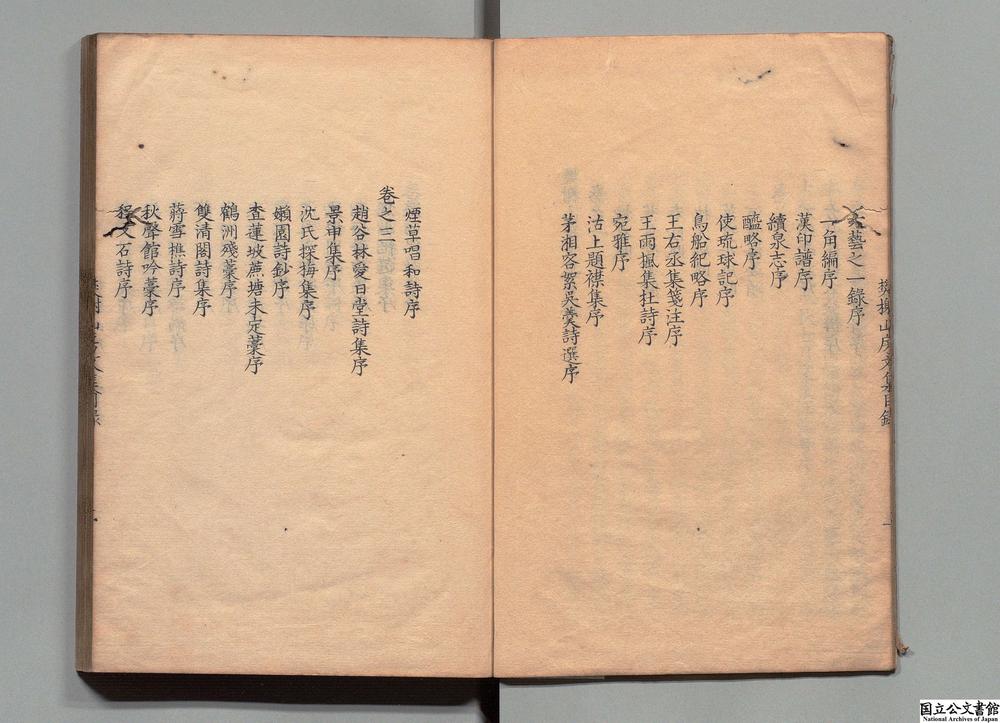 六藝之一錄序
一角編序
漢印譜序
續泉志序
醯略序
使琉球記序
鳥船紀略序
王右丞集箋注序
王雨楓集杜詩序
宛雅序
沽上題襟集序
茅湘容絮吳羹詩選序
煙草唱和詩序
卷之三
趙谷林愛日堂詩集序
景申集序
沈氏探梅集序
嬾園詩鈔序
查蓮坡蔗塘未定藁序
鶴洲殘藁序
雙清閣詩集序
蔣雪樵詩序
秋聲館吟藁序
程文石詩序
国立公文書館
National Archives of Japan